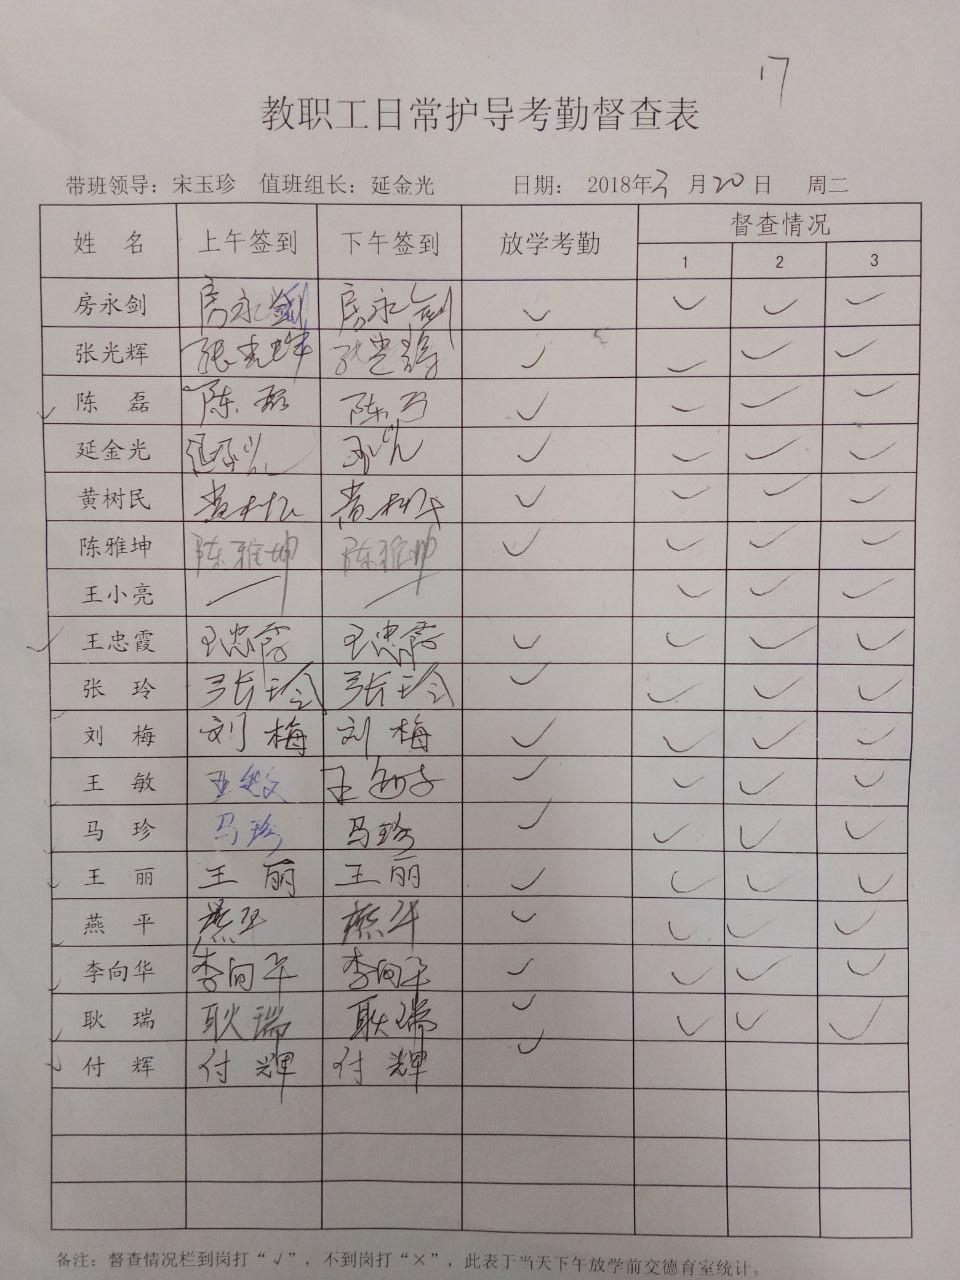 17
教职工日常护导考勤督查表
带班领导：宋玉珍 值班组长：延金光 日期： 2018年3月20日 周二
姓 名 上午签到 下午签到 放学考勤 督查情况
1 2 3
房永剑 房永剑 房永剑 ✓ ✓ ✓ ✓
张光辉 张光辉 张光辉 ✓ ✓ ✓ ✓
✓ 陈 磊 陈磊 陈 ✓ ✓ ✓ ✓
延金光 ✓ ✓ ✓ ✓
黄树民 黄树民 黄树民 ✓ ✓ ✓ ✓
陈雅坤 陈雅坤 陈雅坤 ✓ ✓ ✓ ✓
王小亮 — — ✓ ✓ ✓
✓ 王忠霞 王忠霞 王忠霞 ✓ ✓ ✓ ✓
张 玲 张玲 张玲 ✓ ✓ ✓ ✓
刘 梅 刘梅 刘梅 ✓ ✓ ✓ ✓
王 敏 王敏 王敏 ✓ ✓ ✓ ✓
马 珍 马珍 马珍 ✓ ✓ ✓ ✓
✓ 王 丽 王丽 王丽 ✓ ✓ ✓ ✓
燕 平 燕平 燕平 ✓ ✓ ✓ ✓
✓ 李向华 李向华 李向华 ✓ ✓ ✓ ✓
✓ 耿 瑞 耿瑞 耿瑞 ✓ ✓ ✓ ✓
✓ 付 辉 付辉 付辉 ✓
备注：督查情况栏到岗打“√”，不到岗打“×”，此表于当天下午放学前交德育室统计。